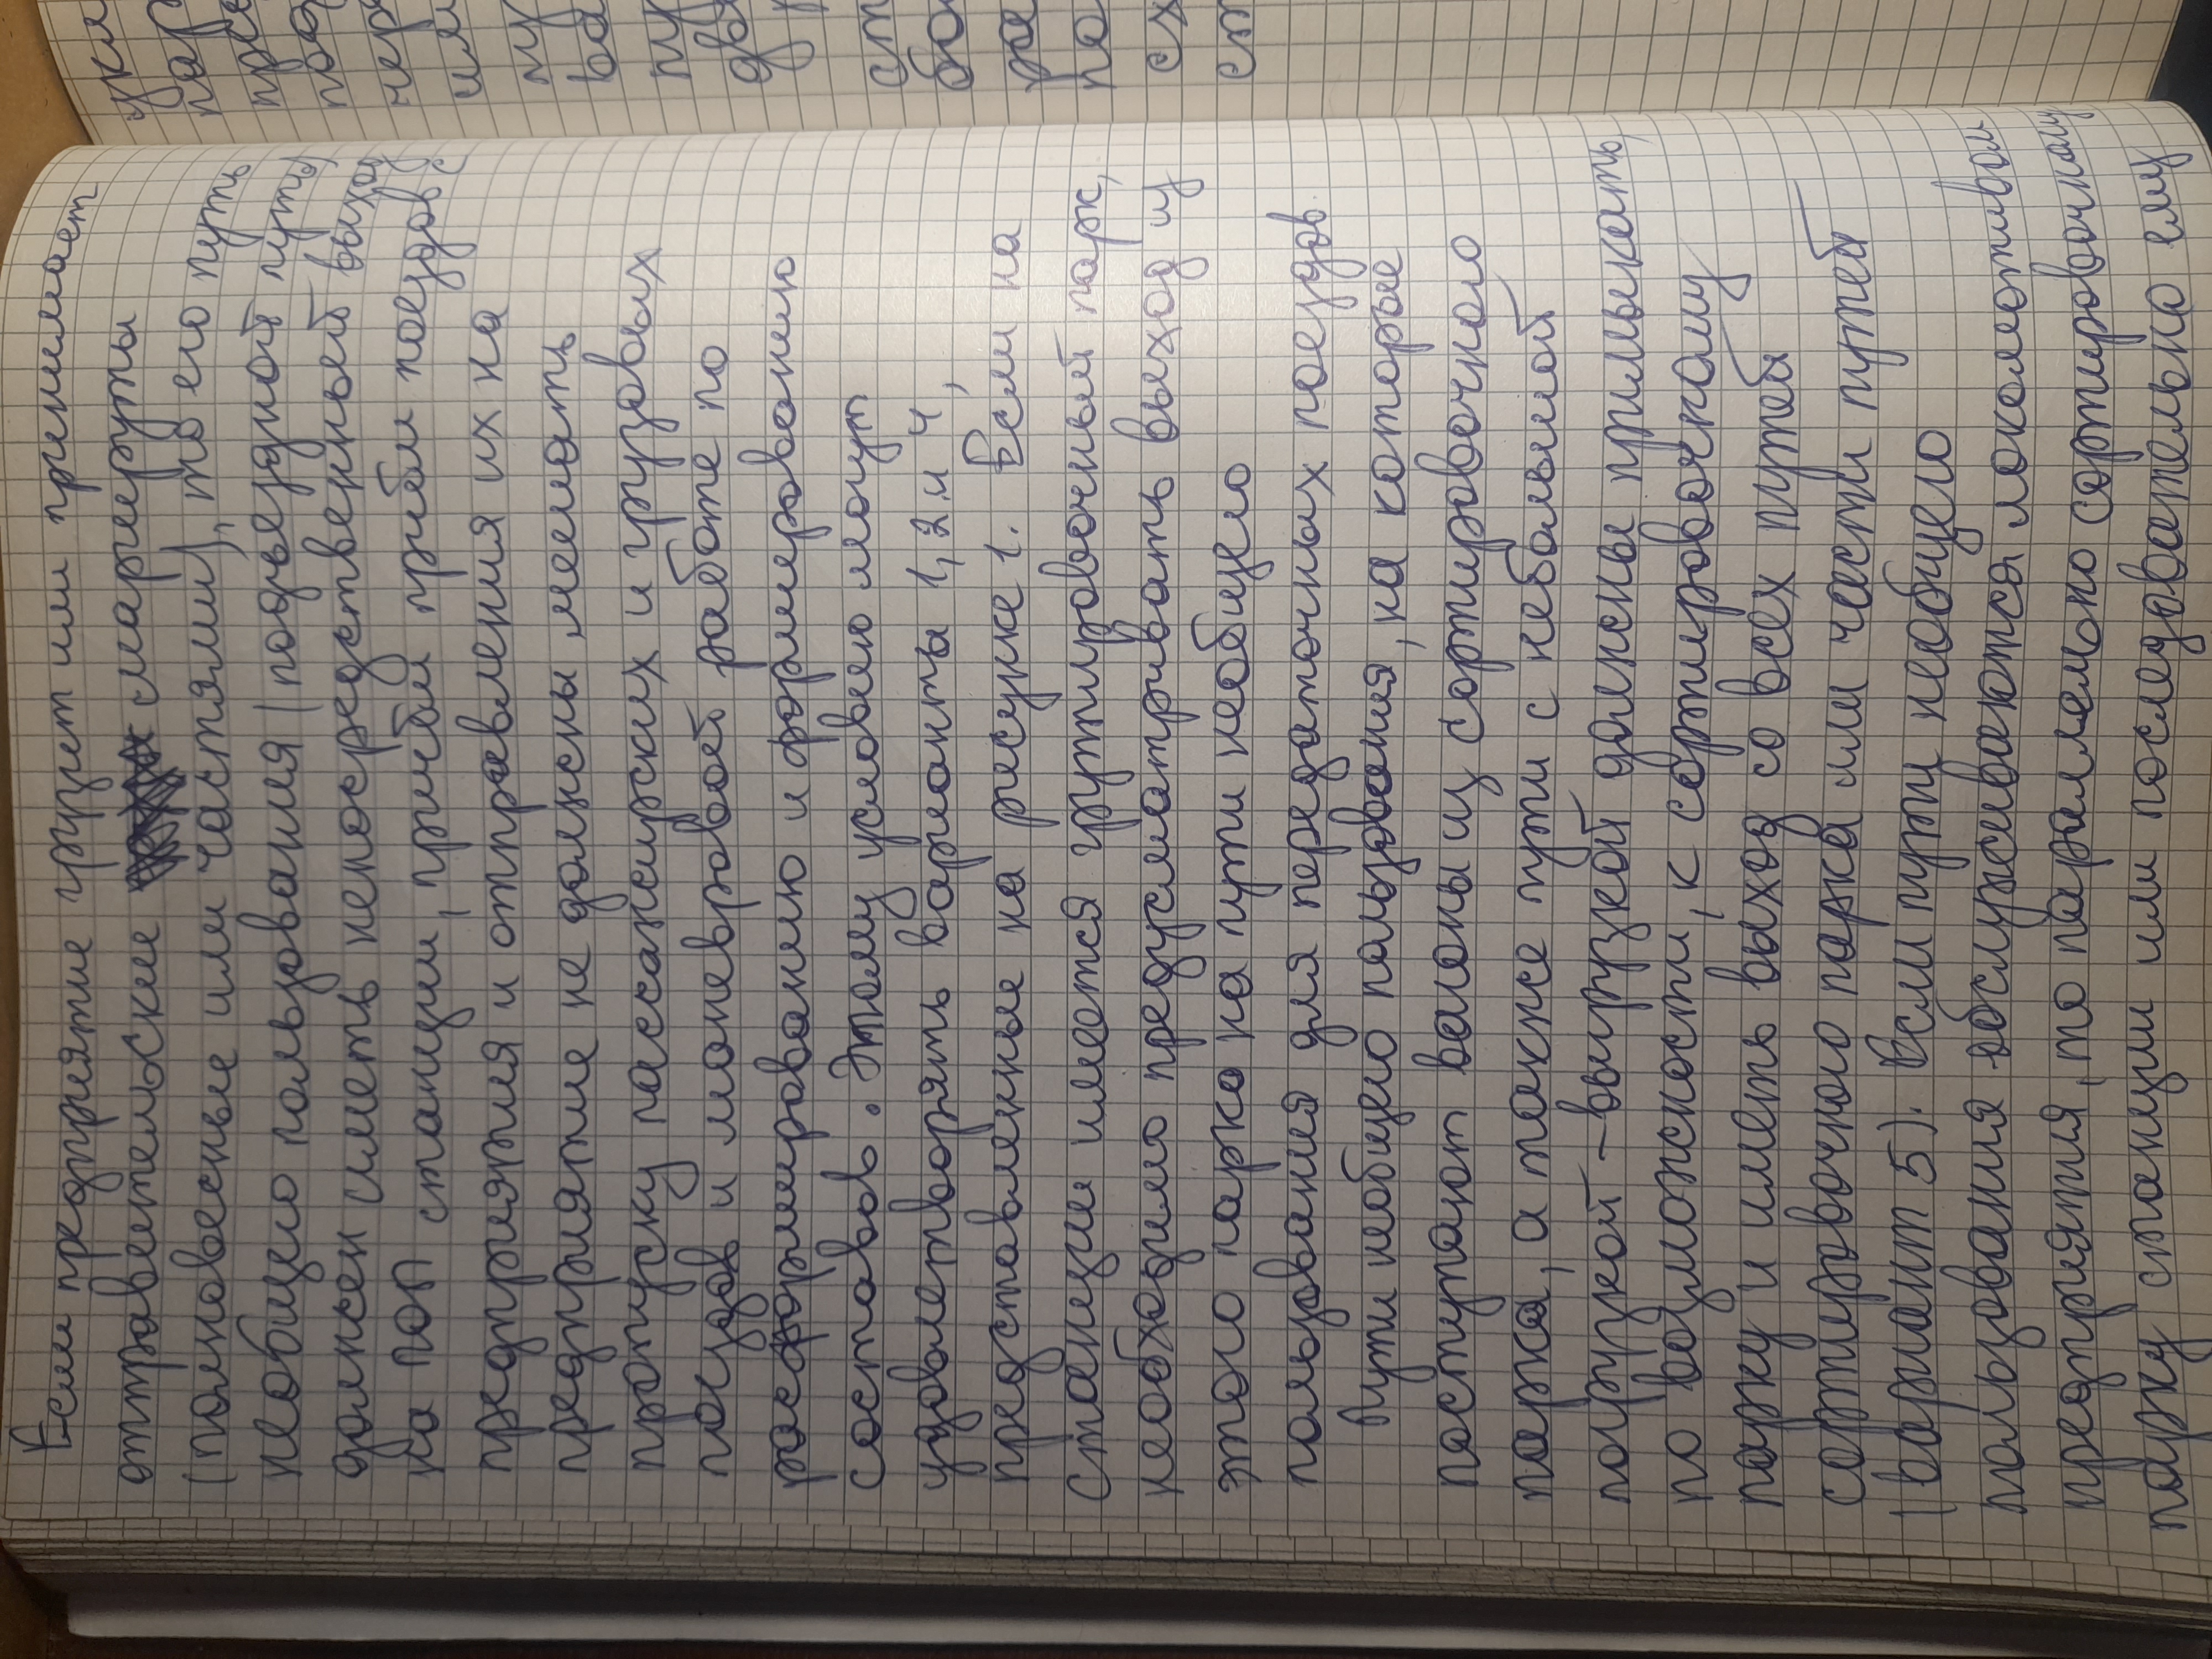 Если предприятие грузит или принимает
отправительские маршруты
(полновесные или частями), то его путь
необщего пользования (подъездной путь)
должен иметь непосредственный выход
на поп станции, причём приём поездов с
предприятия и отправления их на
предприятие не должны мешать
пропуску пассажирских и грузовых
поездов и маневровой работе по
расформированию и формированию
составов. Этому условию могут
удовлетворять варианты 1, 2 и 4,
представленные на рисунке 1. Если на
станции имеется группировочный парк,
необходимо предусматривать выход из
этого парка на пути необщего
пользования для передаточных поездов.
Пути необщего пользования, на которые
поступают вагоны из сортировочного
парка, а также пути с небольшой
погрузкой-выгрузкой должны примыкать,
по возможности, к сортировочному
парку и иметь выход со всех путей
сортировочного парка или части путей
(вариант 5). Если пути необщего
пользования обслуживаются локомотивом
предприятия, то параллельно сортировочному
парку станции или последовательно ему